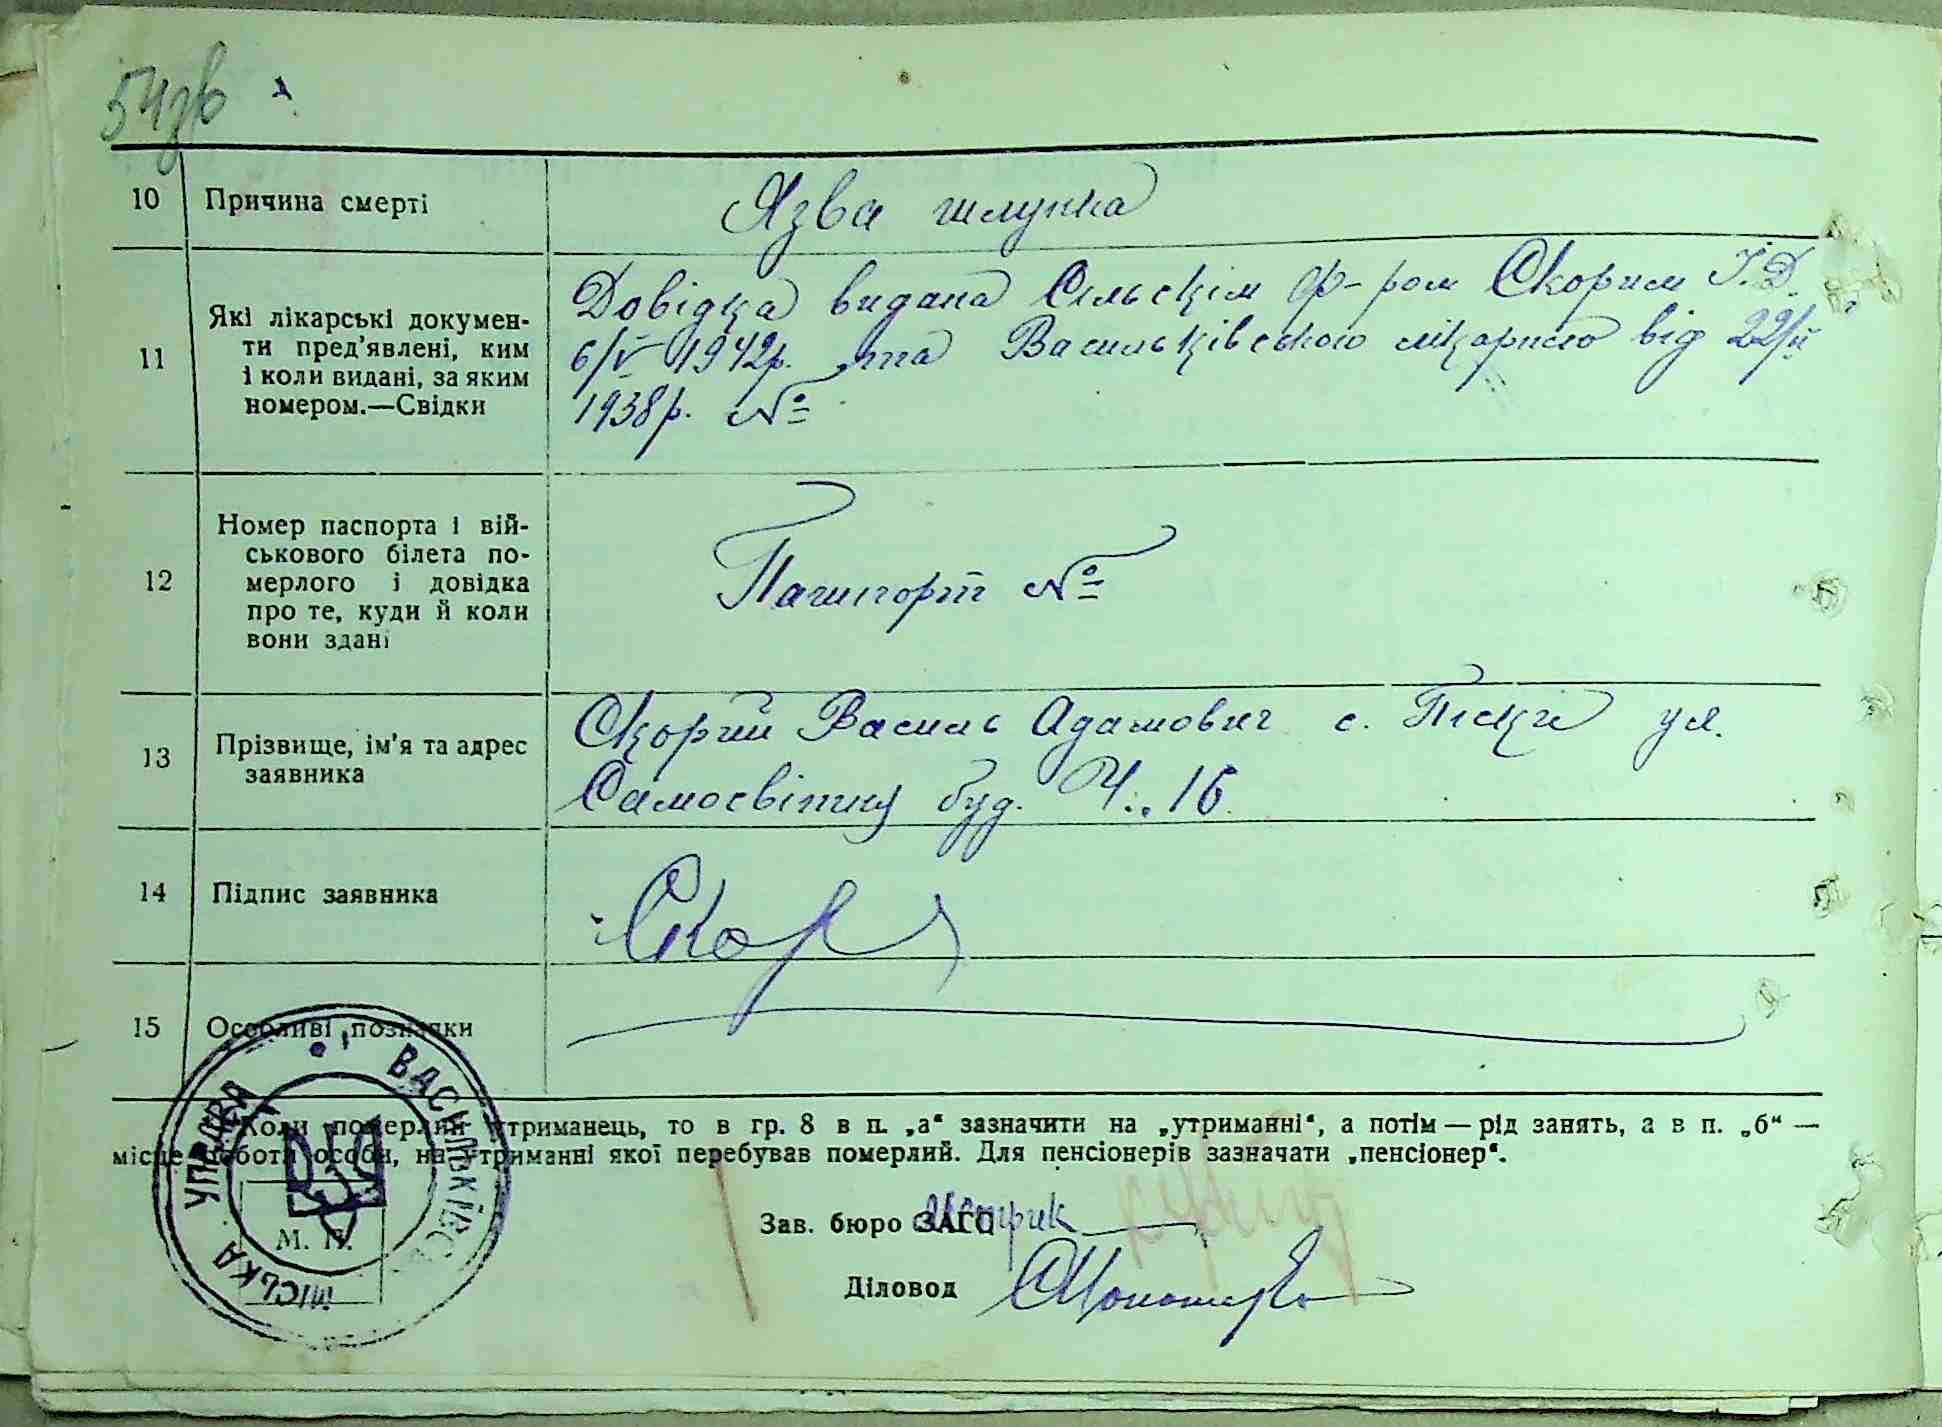 54зв
10 Причина смерті Язва шлунка
11 Які лікарські докумен-
ти пред'явлені, ким
і коли видані, за яким
номером.—Свідки
Довідка видана Сільскім ф-ром Скорим І.Д.
6/V 1942р. та Васильківською лікарнею від 22/II
1938р. №
12 Номер паспорта і вій-
ськового білета по-
мерлого і довідка
про те, куди й коли
вони здані
Пашпорт №
13 Прізвище, ім'я та адрес
заявника
Скорий Василь Адамович с. Піски ул.
Самосвітну буд. Ч. 16
14 Підпис заявника Скор
15 Особливі позначки
Коли померлий утриманець, то в гр. 8 в п. „а“ зазначити на „утриманні“, а потім — рід занять, а в п. „б“ —
місце роботи особи, на утриманні якої перебував померлий. Для пенсіонерів зазначати „пенсіонер“.
Зав. бюро ЗАГС
Діловод
М. П.
ВАСИЛЬКІВСЬКА МІСЬКА УПРАВА